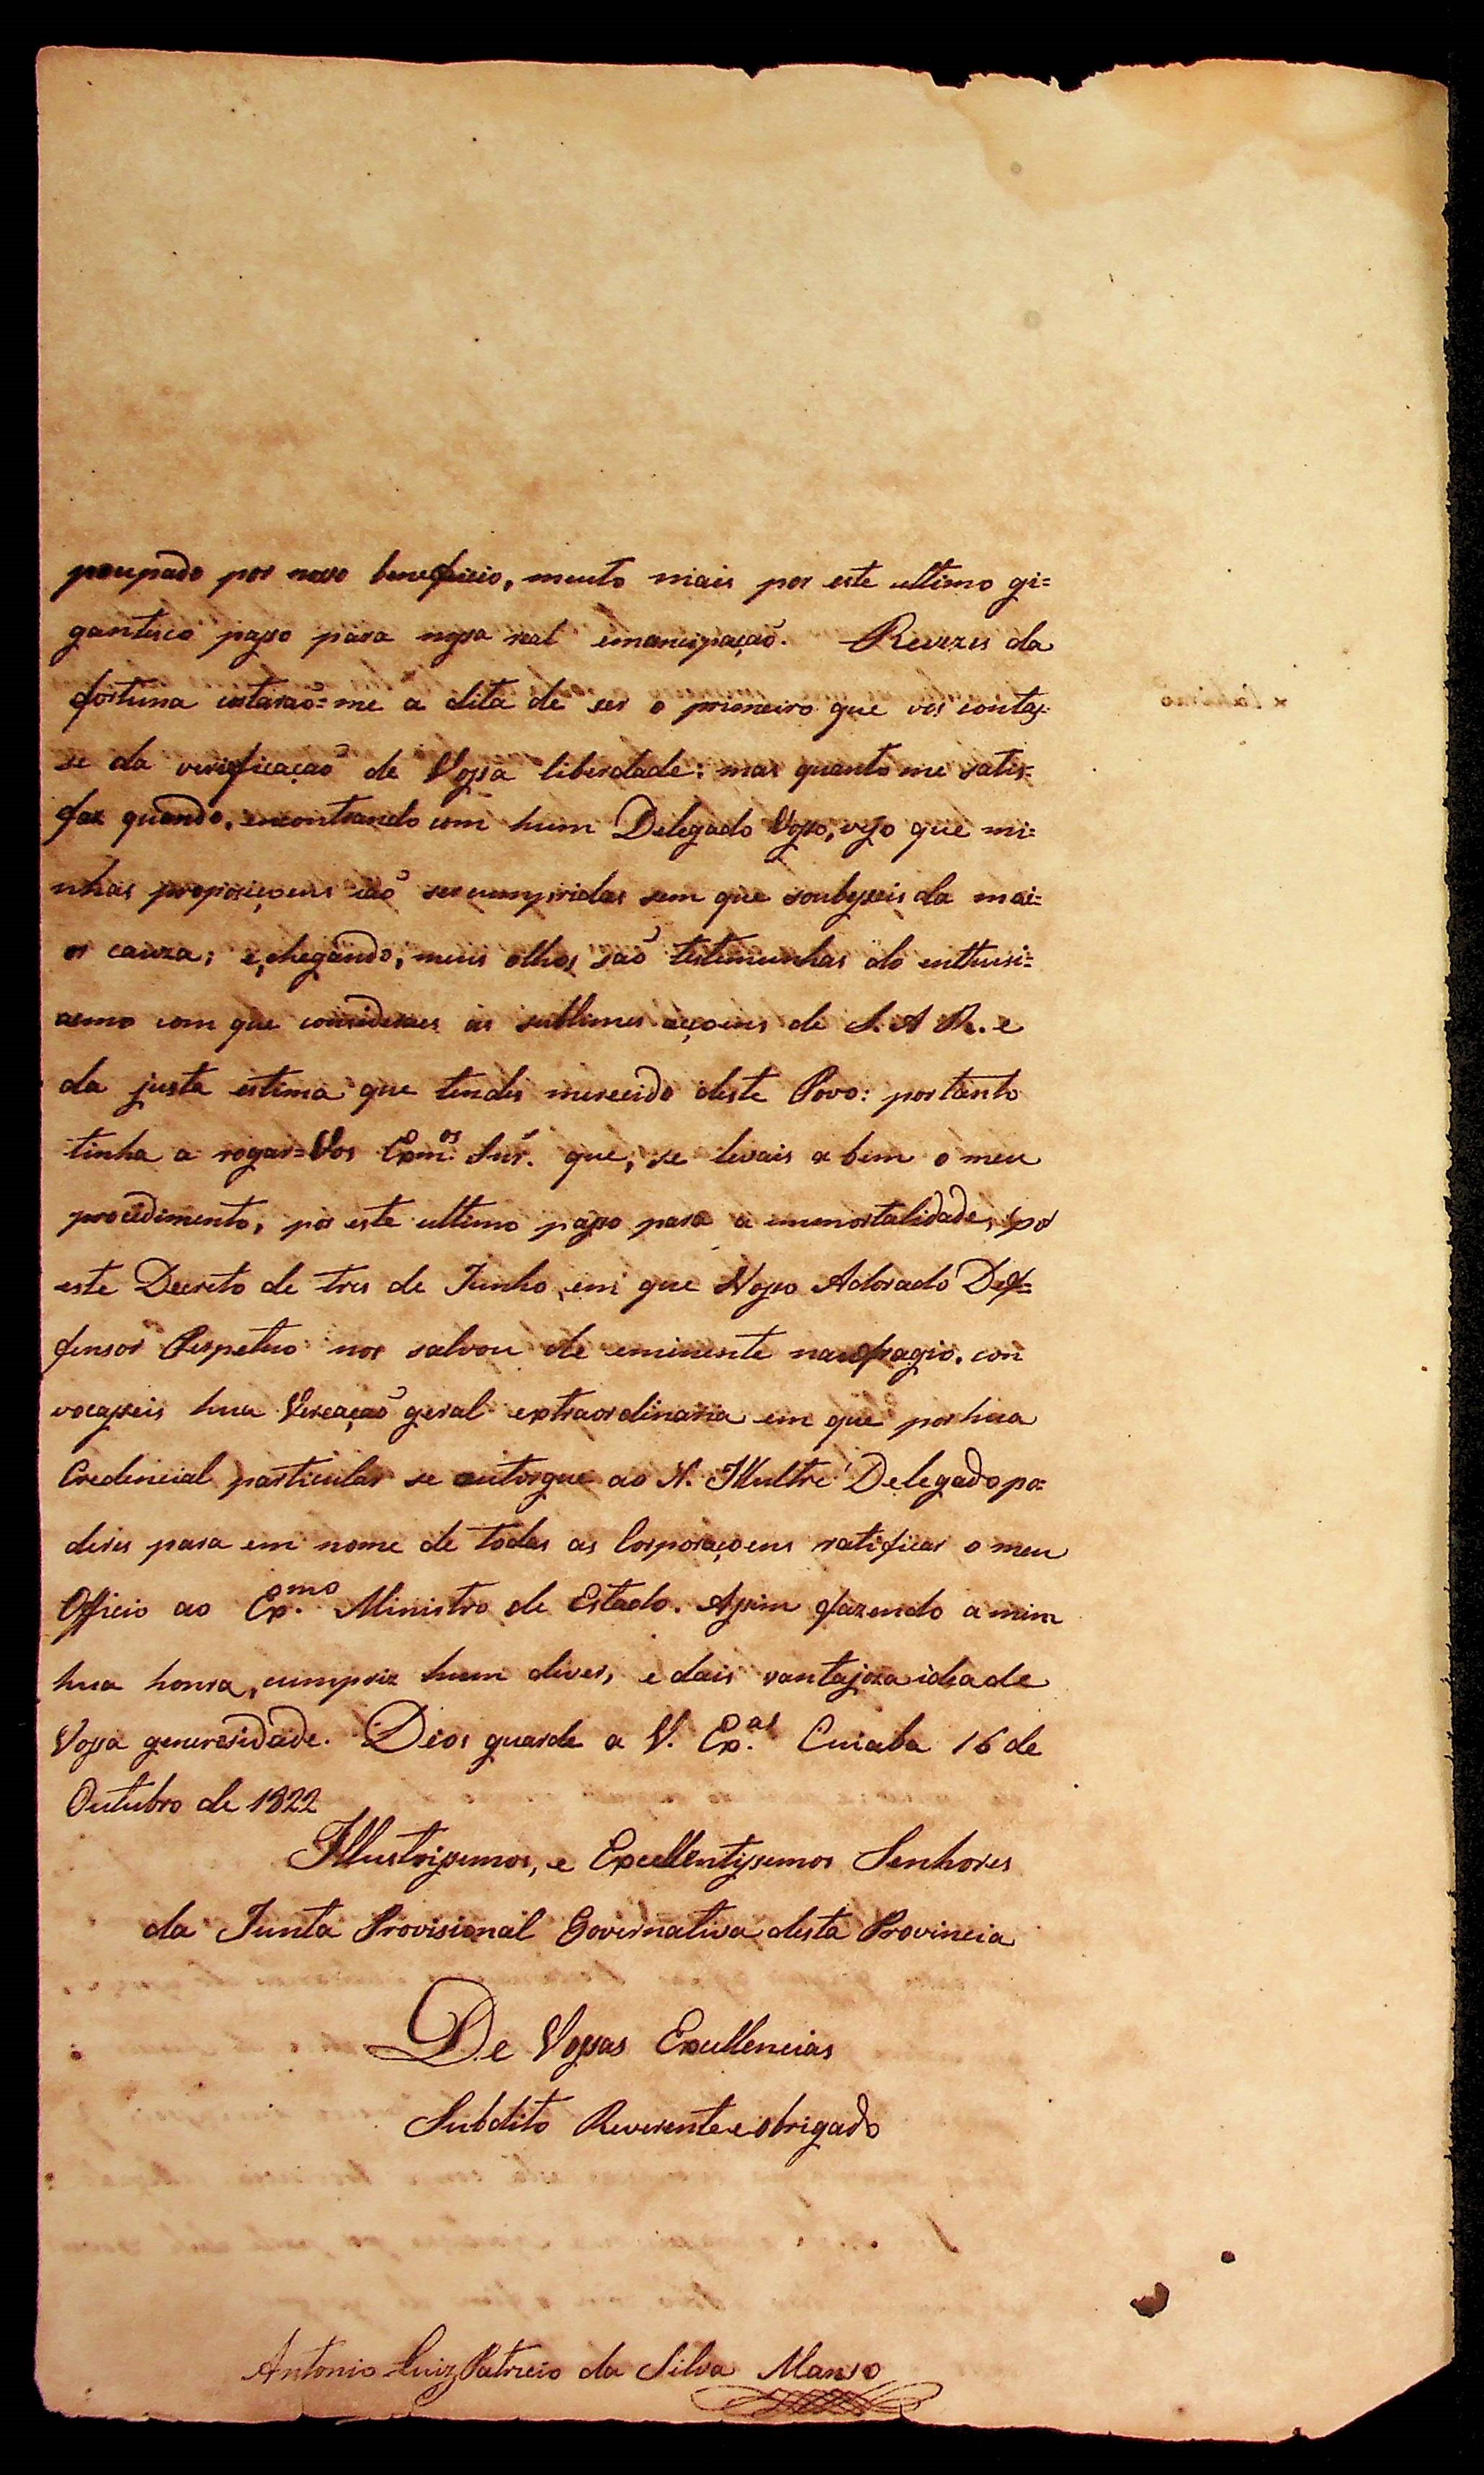 poupado por novo beneficio, muito mais por este ultimo gi=
gantesco passo para nossa real emancipação. Revezes da
fortuna estarão=me a dita de ser o primeiro que vos contas=
se da verificação de Vossa liberdade: mas quanto me satis=
faz quando, encontrando com hum Delegado Vosso, vejo que mi=
nhas proposiçoens são ser cumpridas sem que soubesseis da mai=
or cauza; e, chegando, meus olhos são testemunhas do enthusi=
asmo com que consideraes as sublimes acçoens de S. A R. e
da justa estima que tendes merecido deste Povo: portanto
tinha a rogar=Vos Exm.os Snr.s que, se levais a bem o meu
procedimento, por este ultimo passo para a immortalidade, por
este Decreto de tres de Junho em que Nosso Adorado Def=
fensor Perpetuo nos salvou de eminente naufragio, con
vocasseis hua Vereação geral extraordinaria em que por hua
Credencial particular se outorgue ao N. Illustre Delegado po=
deres para em nome de todas as Corporaçoens ratificar o meu
Officio ao Ex.mo Ministro de Estado. Assim fazendo a mim
hua honra, cumpriz hum dever, e dais vantajoza idea de
Vossa generosidade. Deos guarde a V. Ex.as Cuiaba 16 de
Outubro de 1822
Illustrissimos, e Excellentissimos Senhores
da Junta Provisional Governativa desta Provincia
De Vossas Excellencias
Subdito Reverente e obrigado
Antonio Luiz Patricio da Silva Manso